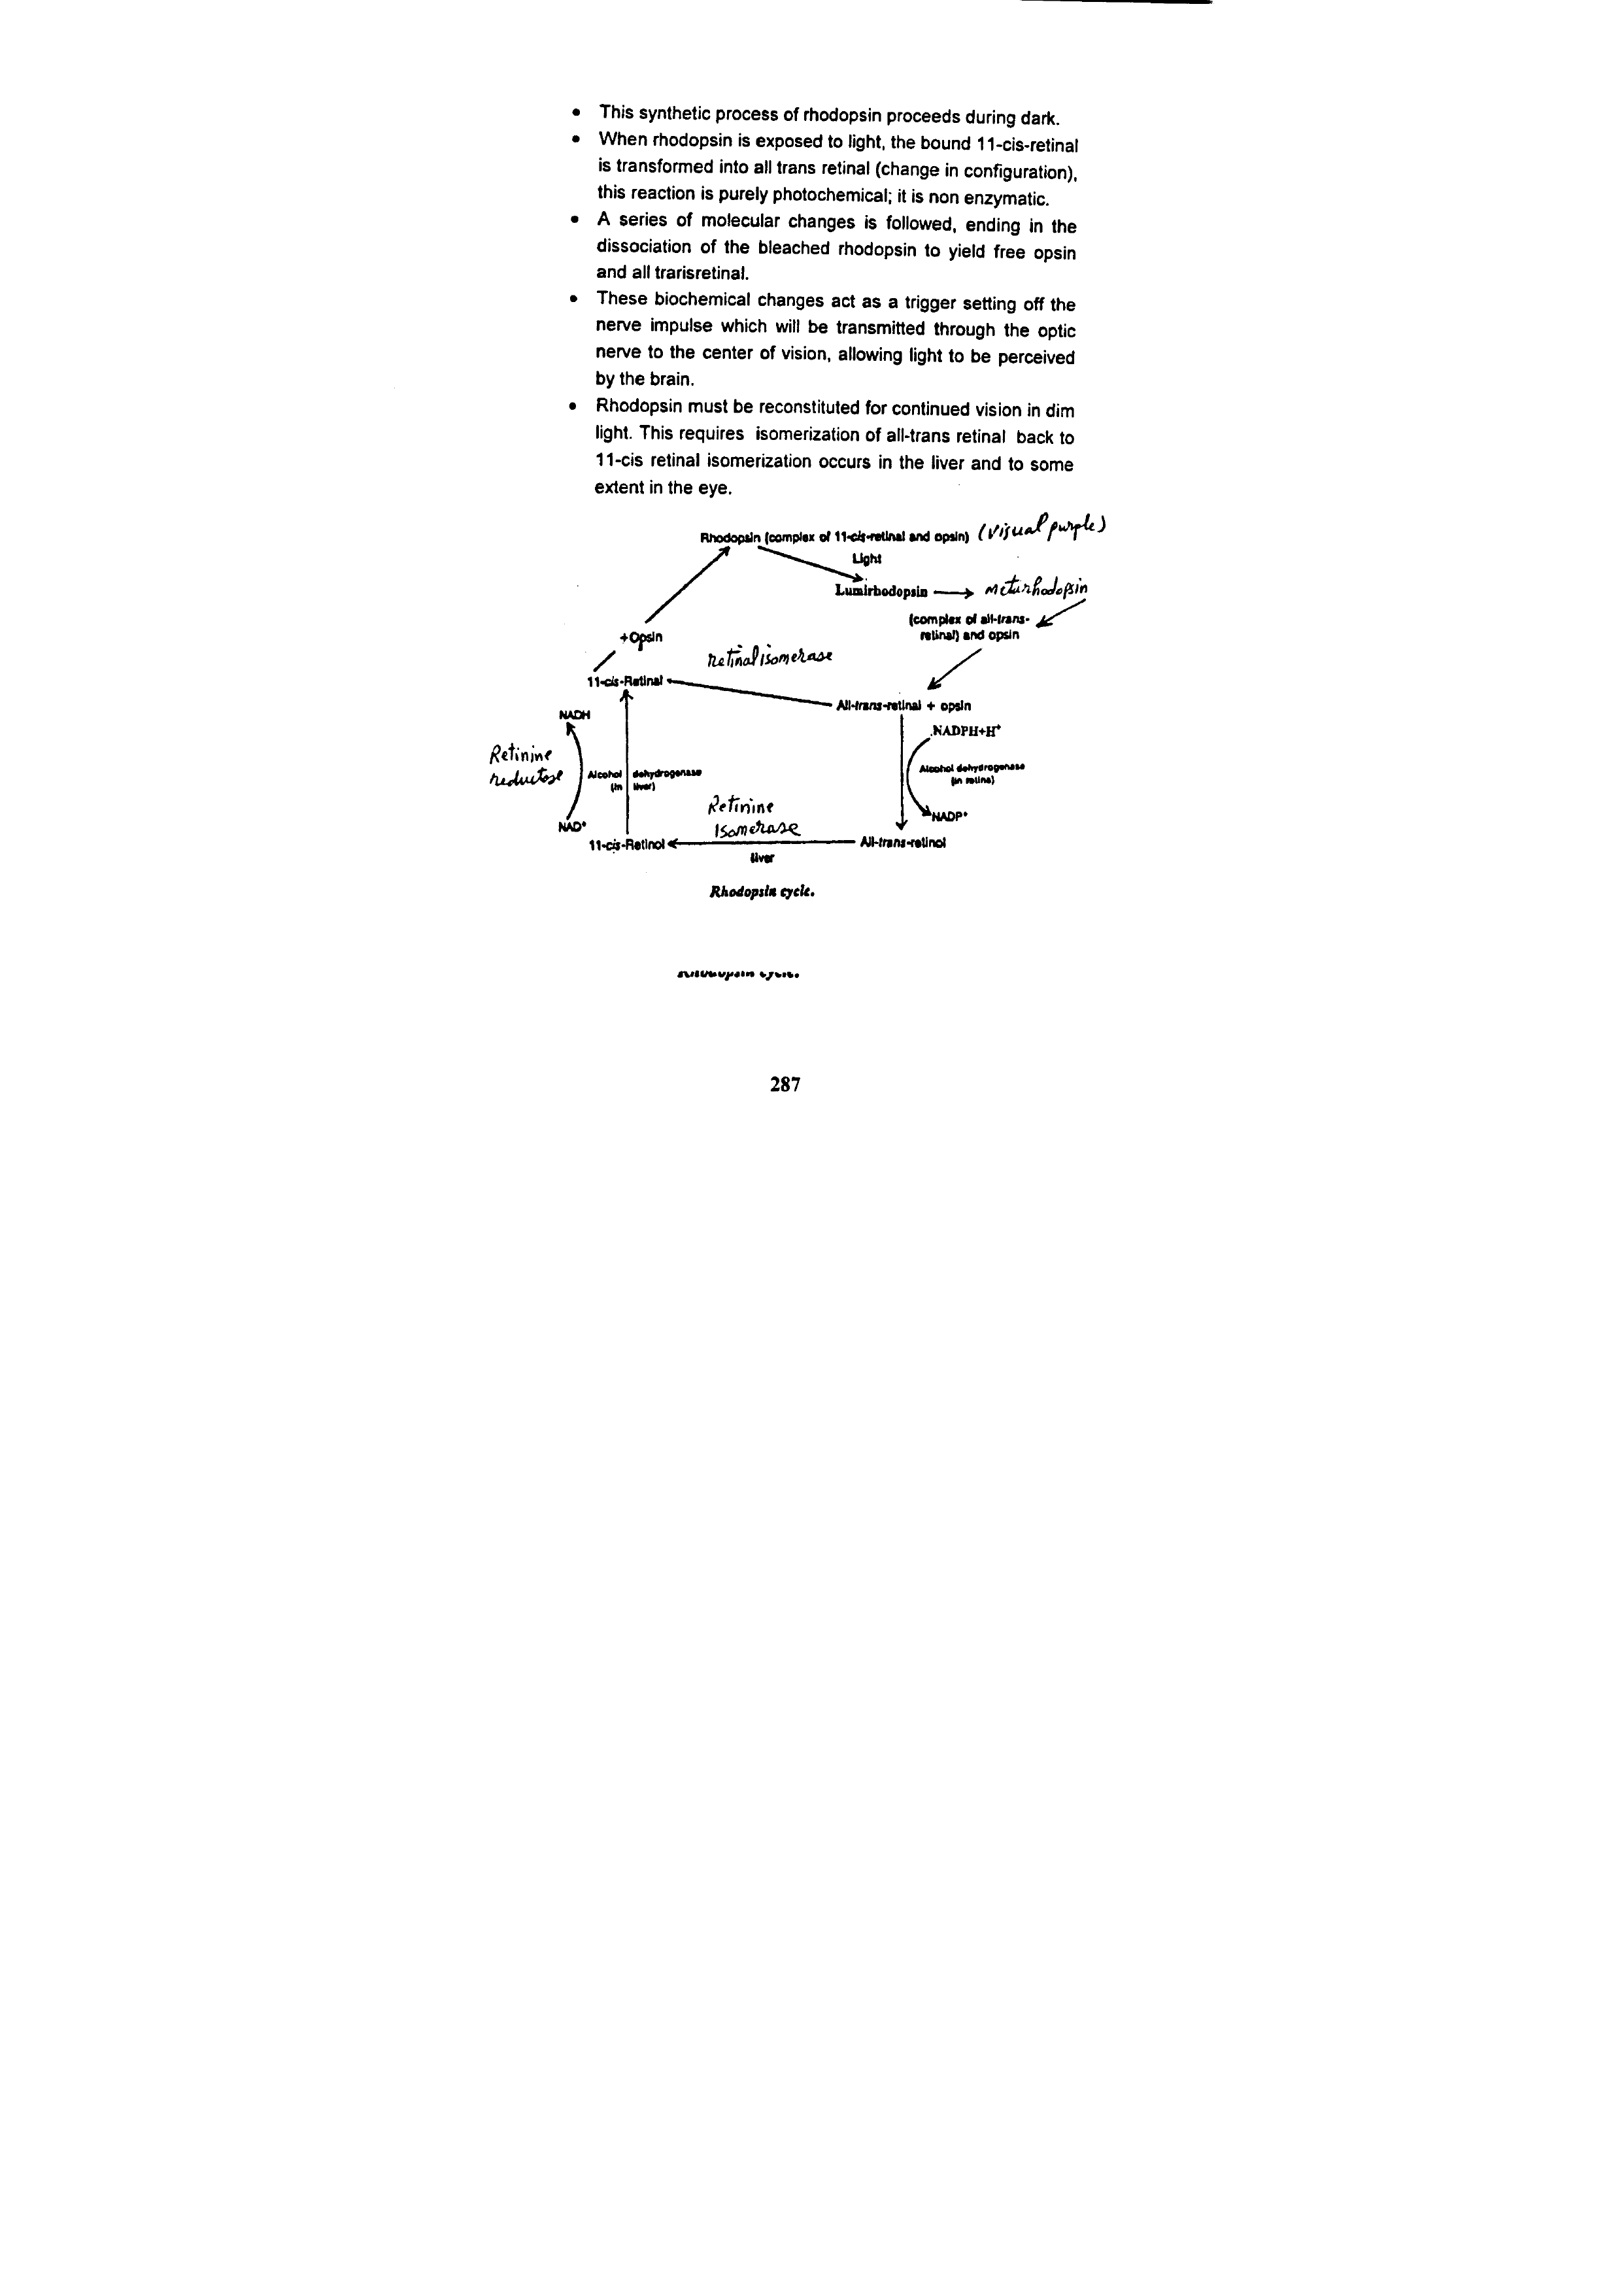 • This synthetic process of rhodopsin proceeds during dark.
• When rhodopsin is exposed to light, the bound 11-cis-retinal
is transformed into all trans retinal (change in configuration),
this reaction is purely photochemical; it is non enzymatic.
• A series of molecular changes is followed, ending in the
dissociation of the bleached rhodopsin to yield free opsin
and all trarisretinal.
• These biochemical changes act as a trigger setting off the
nerve impulse which will be transmitted through the optic
nerve to the center of vision, allowing light to be perceived
by the brain.
• Rhodopsin must be reconstituted for continued vision in dim
light. This requires isomerization of all-trans retinal back to
11-cis retinal isomerization occurs in the liver and to some
extent in the eye.
Rhodopsin (complex of 11-cis-retinal and opsin) (visual purple)
Light
Lumirhodopsin → meturhodopsin
(complex of all-trans-
retinal) and opsin
+Opsin
retinal isomerase
11-cis-Retinal
All-trans-retinal + opsin
NADH
NADPH+H⁺
Retinine
reductose
Alcohol dehydrogenase
(in liver)
Alcohol dehydrogenase
(in retina)
Retinine
isomerase
NAD⁺
NADP⁺
11-cis-Retinol
All-trans-retinol
liver
Rhodopsin cycle.
Rhodopsin cycle.
287